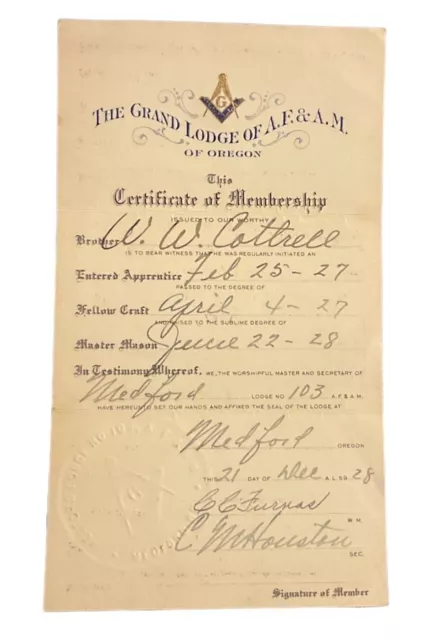 G
THE GRAND LODGE OF A.F. & A.M.
OF OREGON
This
Certificate of Membership
ISSUED TO OUR WORTHY
Brother W. W. Cottrell
IS TO BEAR WITNESS THAT HE WAS REGULARLY INITIATED AN
Entered Apprentice Feb 25-27
PASSED TO THE DEGREE OF
Fellow Craft April 4-27
AND RAISED TO THE SUBLIME DEGREE OF
Master Mason June 22-28
In Testimony Whereof, WE, THE WORSHIPFUL MASTER AND SECRETARY OF
Medford LODGE NO 103 A.F.& A.M.
HAVE HEREUNTO SET OUR HANDS AND AFFIXED THE SEAL OF THE LODGE AT
Medford OREGON
THIS 21 DAY OF Dec A.L. 59 28
C C Furnas W.M.
C M Houston SEC.
Signature of Member